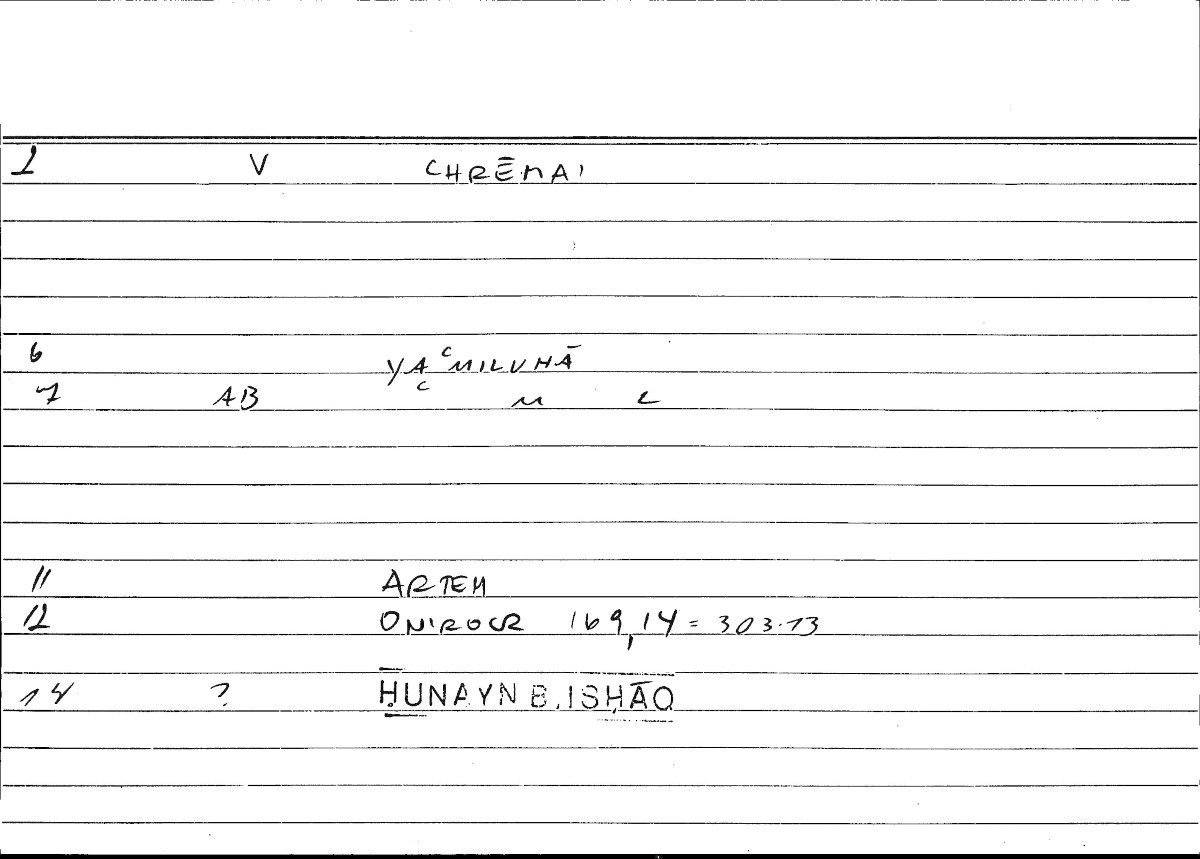 1 V CHRĒMAI
6 YAʿMILUHĀ
7 AB
11 ARTEM
12 ONIROCR 169,14 = 303.13
14 ? ḤUNAYN B. ISḤĀQ